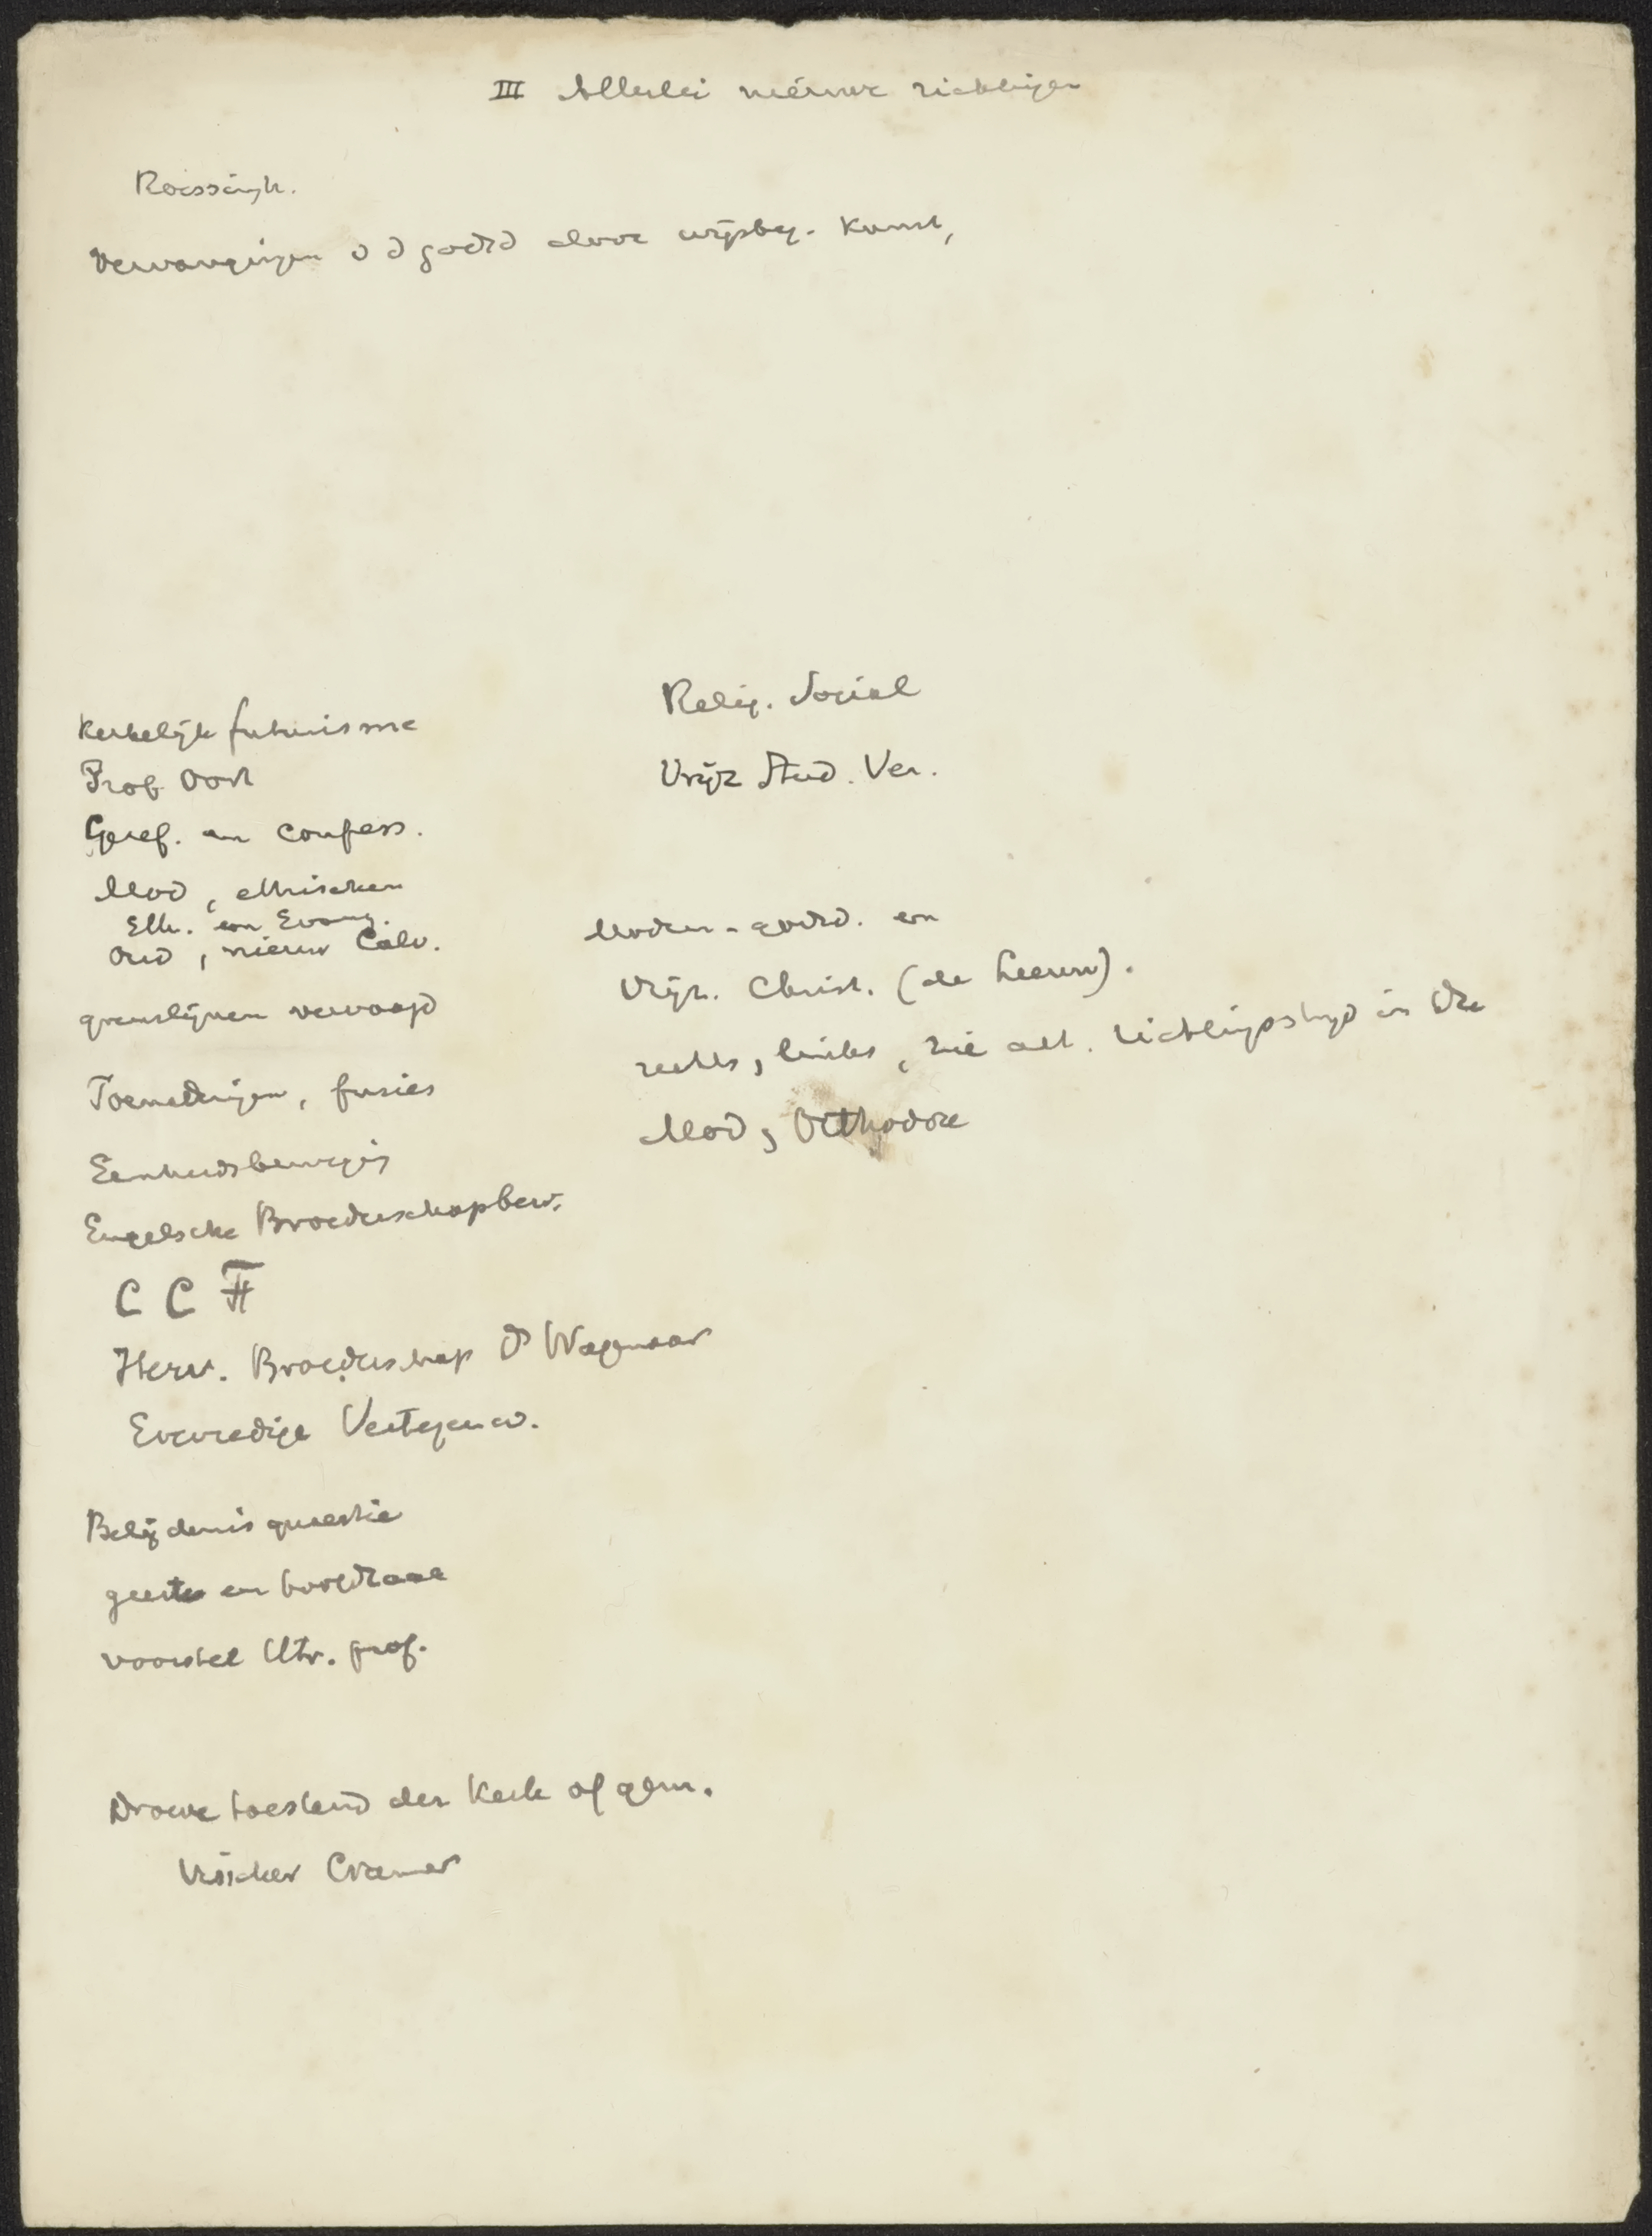 III Allerlei nieuwe richtingen
Roessingh.
Vervangingen v d godsd door wijsbeg. Kunst,
Kerkelijk futurisme
Prof. Oort
Geref. en Confess.
Mod, ethischen
Eth. en Evang.
Oud, nieuw Calv.
grenslijnen vervaagd
Toenaderingen, fusies
Eenheidsbeweging
Engelsche Broederschapbew.
C C F
Herv. Broederschap Ds Wagenaar
Evenredige Vertegenw.
Belijdenis quaestie
geest en hoofdzaak
voorstel Utr. prof.
Droeve toestand der Kerk of gem.
Visscher Cramer
Relig. Social
Vrijz Stud. Ver.
Modern-godsd. en
Vrijz. Christ. (de Leeuw).
rechts, links, zie art. richtingsstrijd in
Mod, Orthodoxe